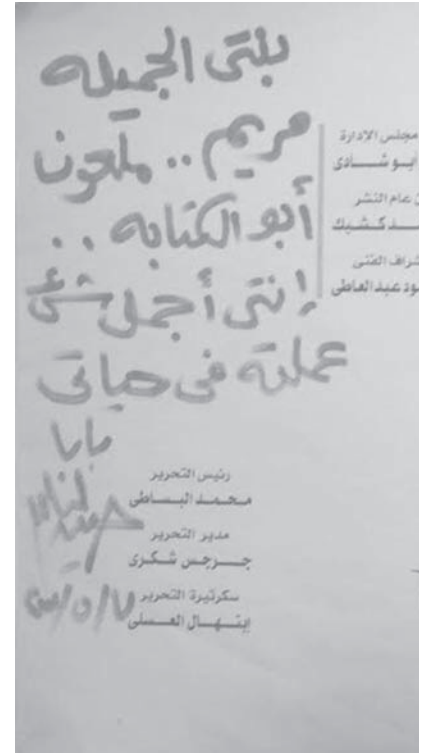 بنتى الجميله
مريم .. ملعون
أبو الكتابه ..
إنتى أجمل شئ
عملته فى حياتى
بابا
مجلس الإدارة
أبو شادى
عام النشر
ـد كشيك
ـراف الفنى
ـود عبدالعاطى
رئيس التحرير
محمد البساطى
مدير التحرير
جرجس شكرى
سكرتيرة التحرير
إبتهال العسلى